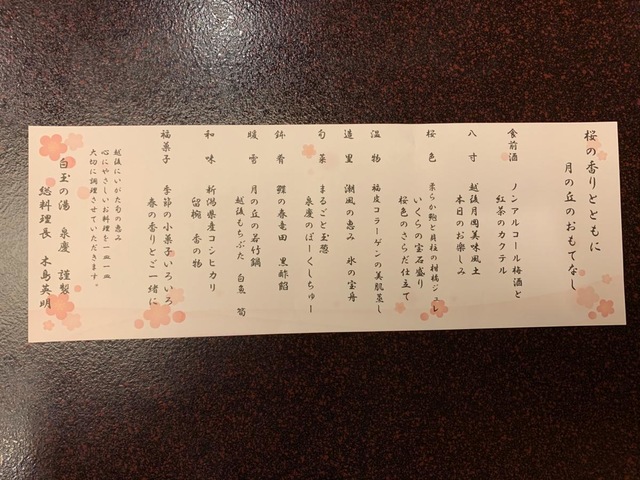 桜の香りとともに
月の丘のおもてなし
食前酒 ノンアルコール梅酒と
紅茶のカクテル
八寸 越後月岡美味風土
本日のお楽しみ
桜色 柔らか鮑と月柱の柑橘ジュレ
いくらの宝石盛り
桜色のさらだ仕立て
温物 福皮コラーゲンの美肌蒸し
造里 潮風の恵み 氷の宝舟
旬菜 まるごと玉葱
泉慶のぽーくしちゅー
鉢肴 鰈の春竜田 黒酢餡
暖雪 月の丘の若竹鍋
越後もちぶた 白魚 筍
和味 新潟県産コシヒカリ
留椀 香の物
福菓子 季節の小菓子いろいろ
春の香りとご一緒に
越後にいがた旬の恵み
心にやさしいお料理を一皿一皿
大切に調理させていただきます。
白玉の湯 泉慶 謹製
総料理長 木島英明